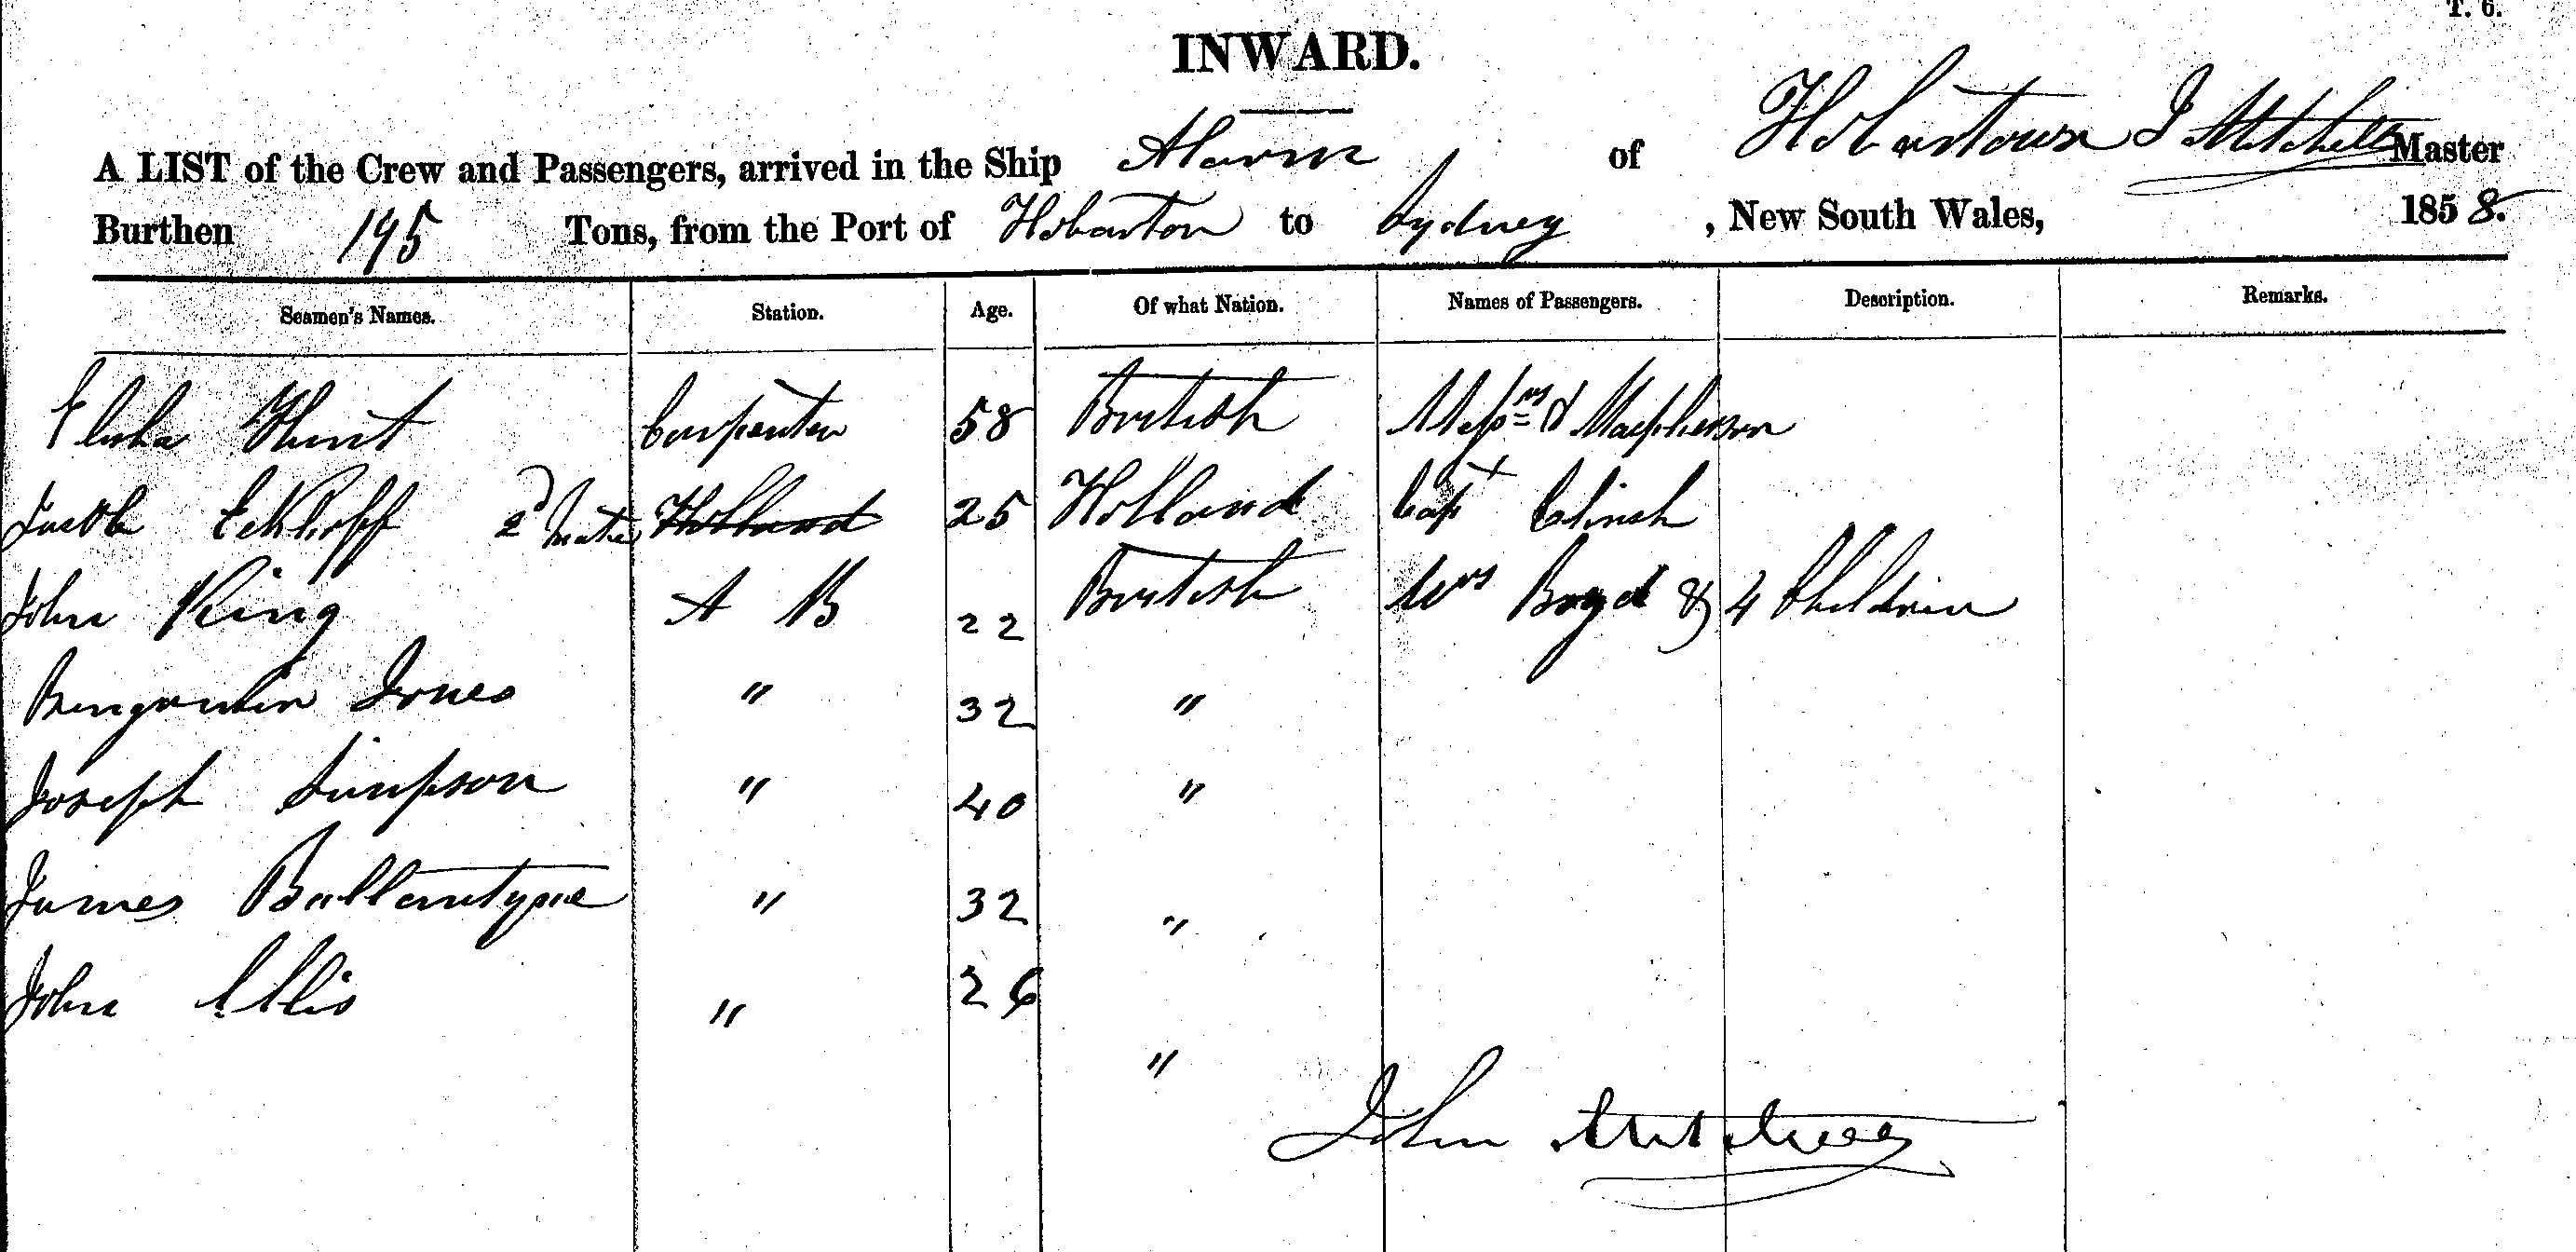 T. 6.
INWARD.
A LIST of the Crew and Passengers, arrived in the Ship Alarm of Hobartown J Mitchell Master
Burthen 195 Tons, from the Port of Hobarton to Sydney , New South Wales, 1858.
Seamen's Names. Station. Age. Of what Nation. Names of Passengers. Description. Remarks.
Elisha Hunt Carpenter 58 British & Macpherson
Jacob Eckhoff 2d Mate Holland 25 Holland Capt Clinch
John King A B 22 British Mrs Boyd & 4 Children
Benjamin Jones " 32 "
Joseph Simpson " 40 "
James Ballantyne " 32 "
John Ellis " 26 "
John Mitchell